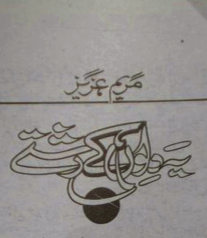 مریم عزیز
یہ دل کے رشتے